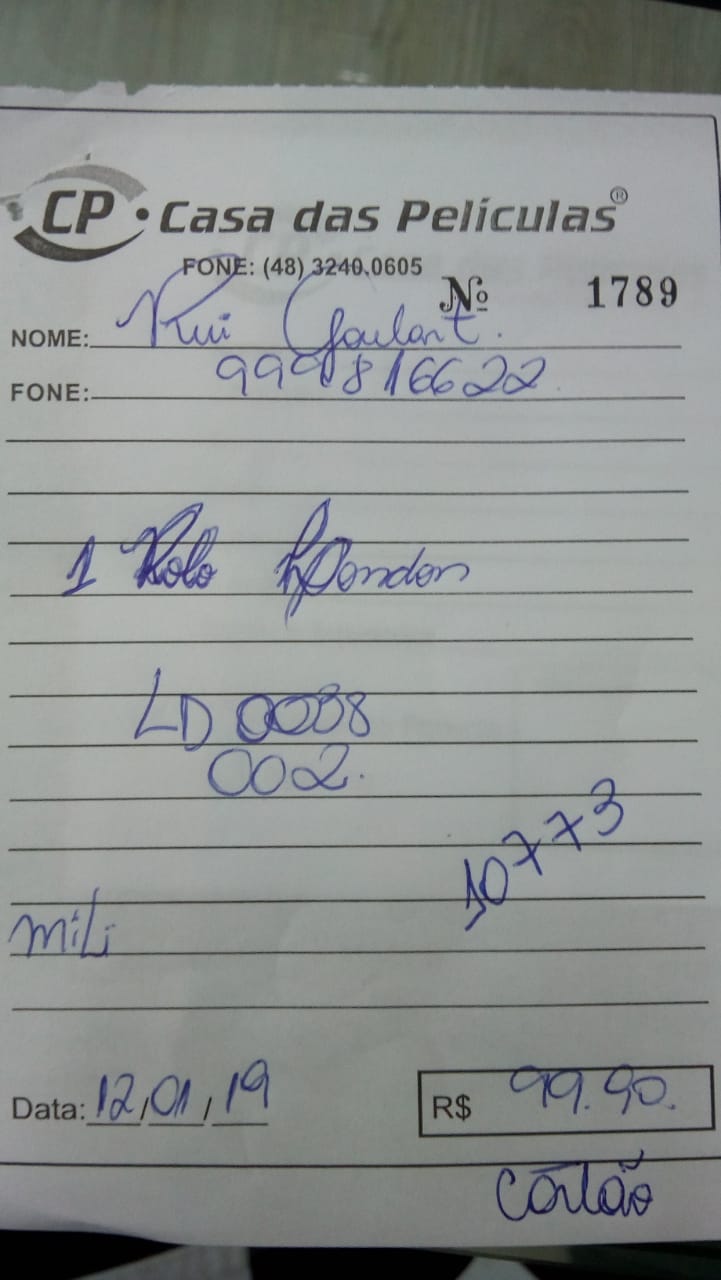 CP • Casa das Películas®
FONE: (48) 3240.0605
Nº 1789
NOME: Rui Goulart.
FONE: 999816622
1 Rolo London
LD 0038
002.
10773
mili
Data: 12/01/19
R$ 99.90.
Cartão